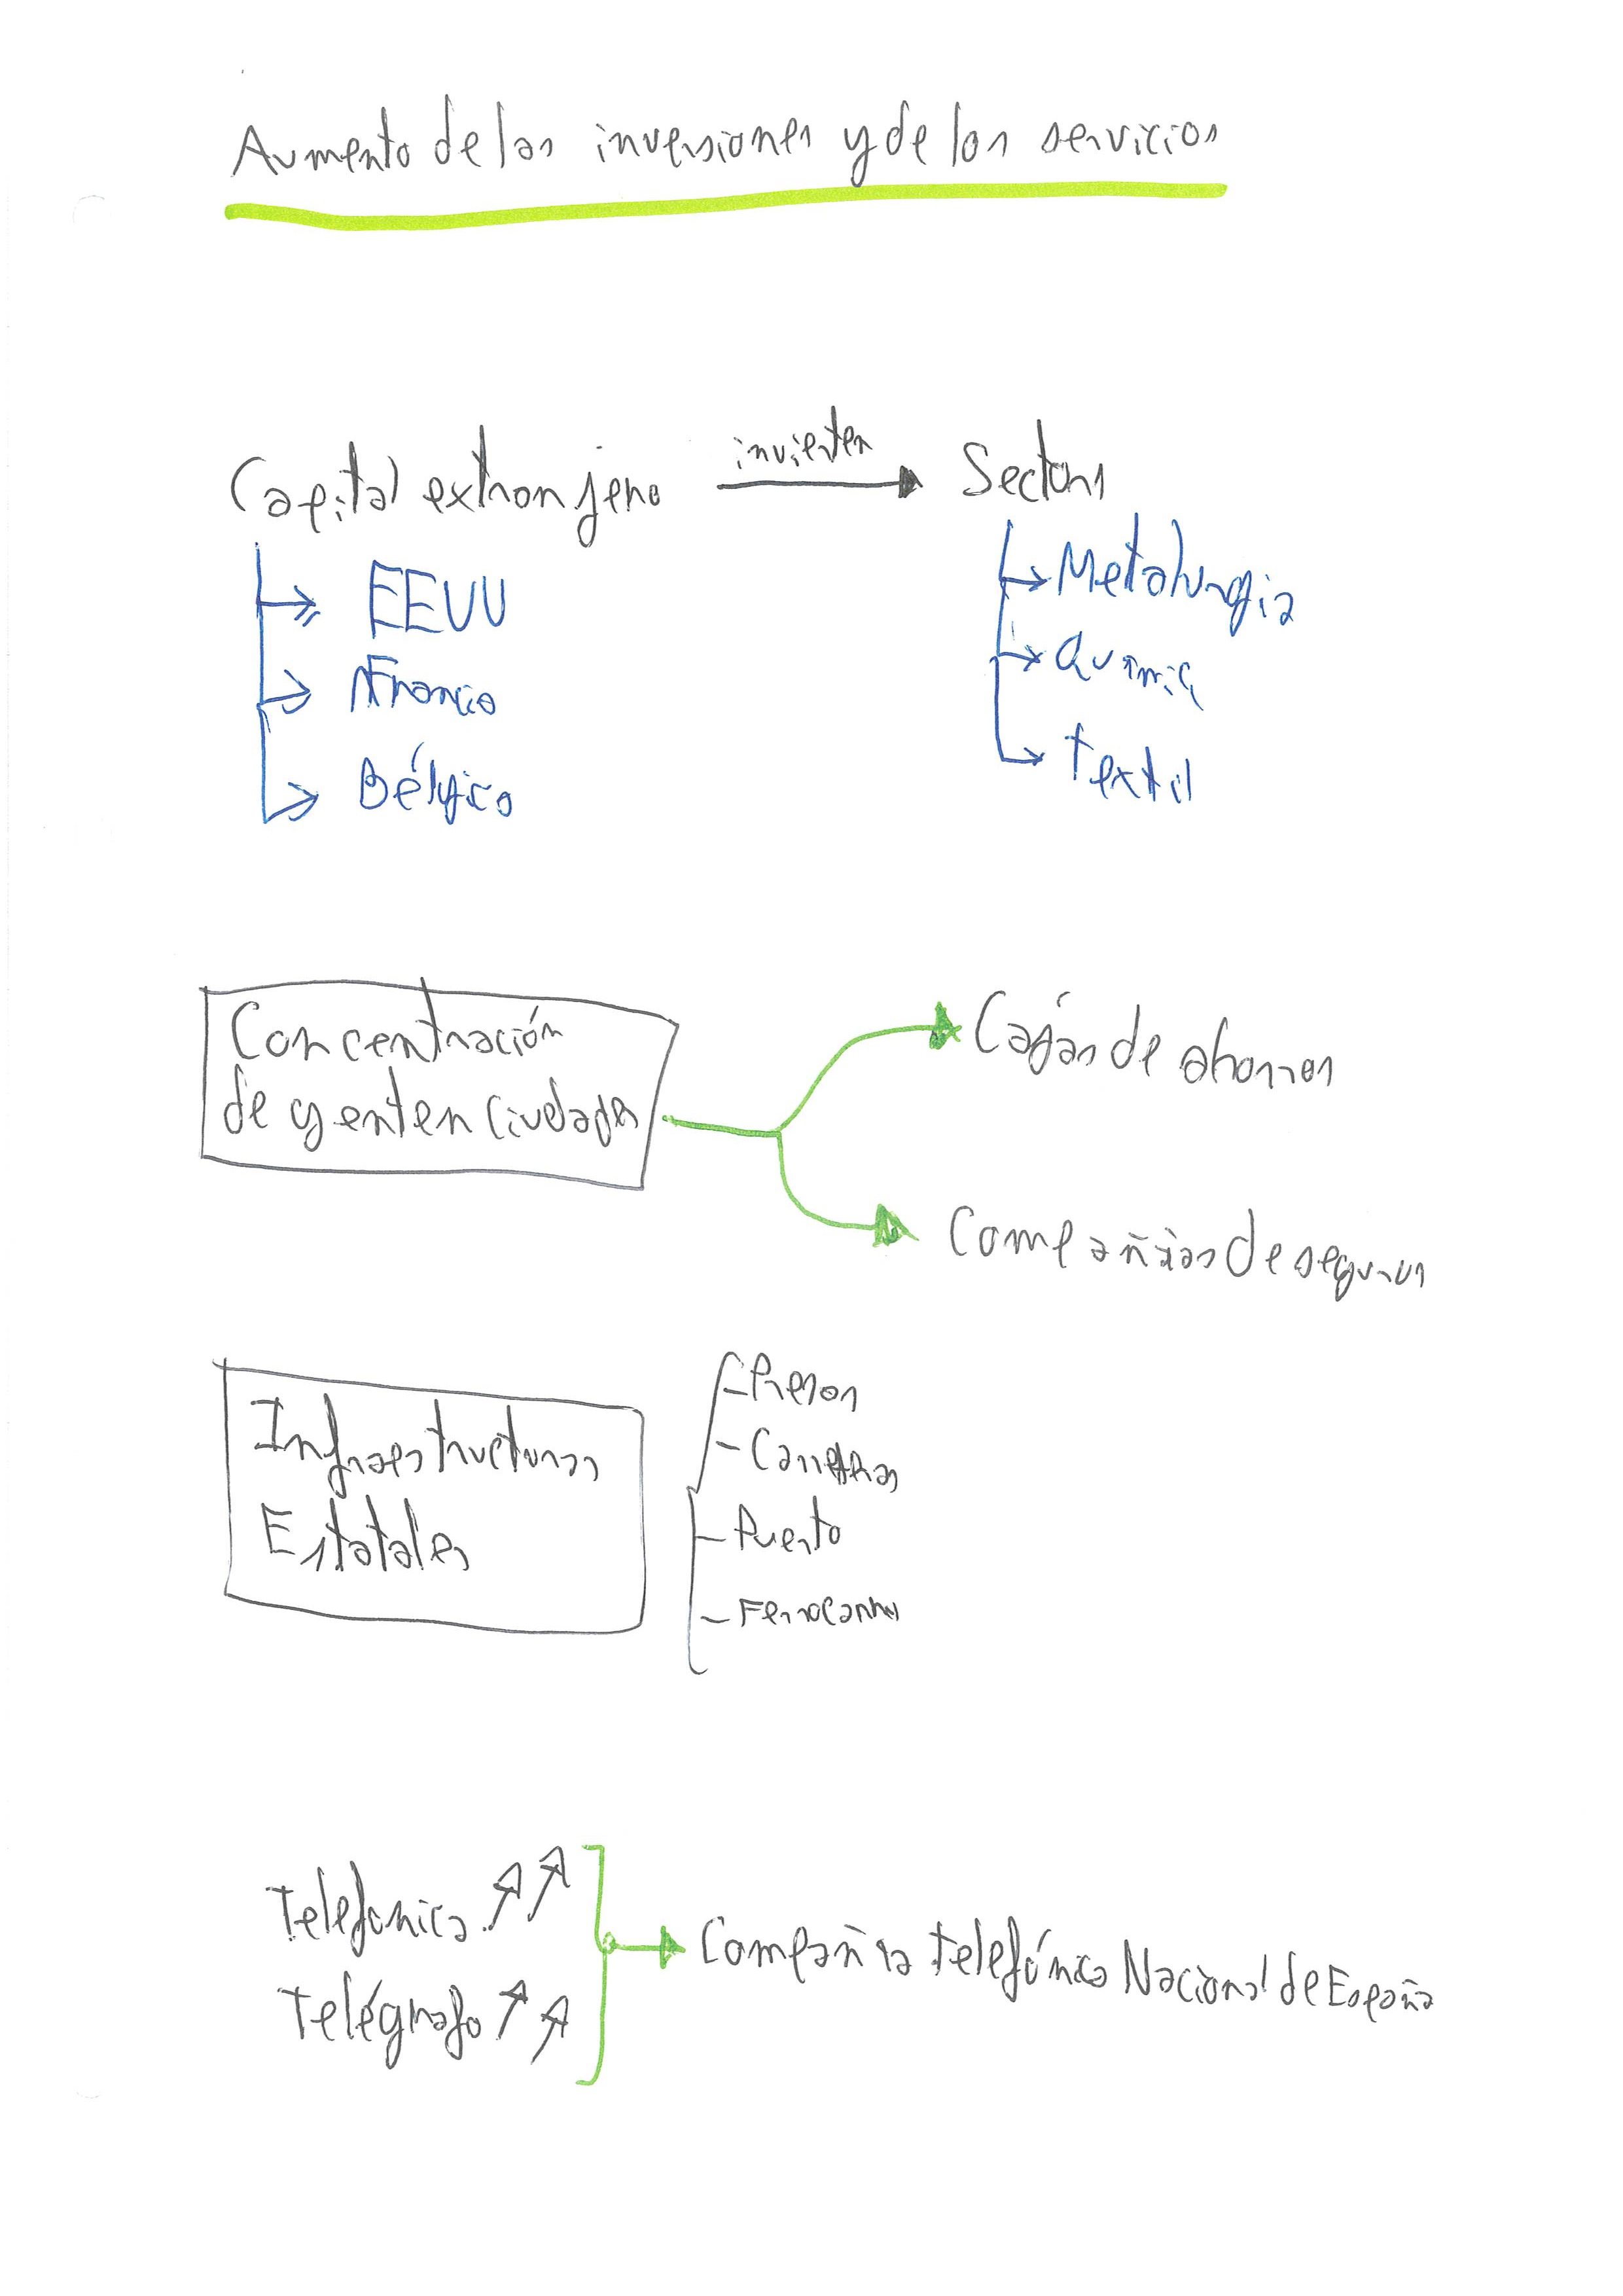 Aumento de las inversiones y de los servicios
Capital extranjero invierten Sectors
EEUU
Francia
Bélgica
Metalurgia
Quimic
textil
Concentración
de gente en ciudades
Cajas de ahorros
Compañias de seguros
Infraestructuras
Estatales
- Presas
- Carreteras
- Puerto
- Ferrocarril
telefonica
telégrafo
Compañia telefónica Nacional de España